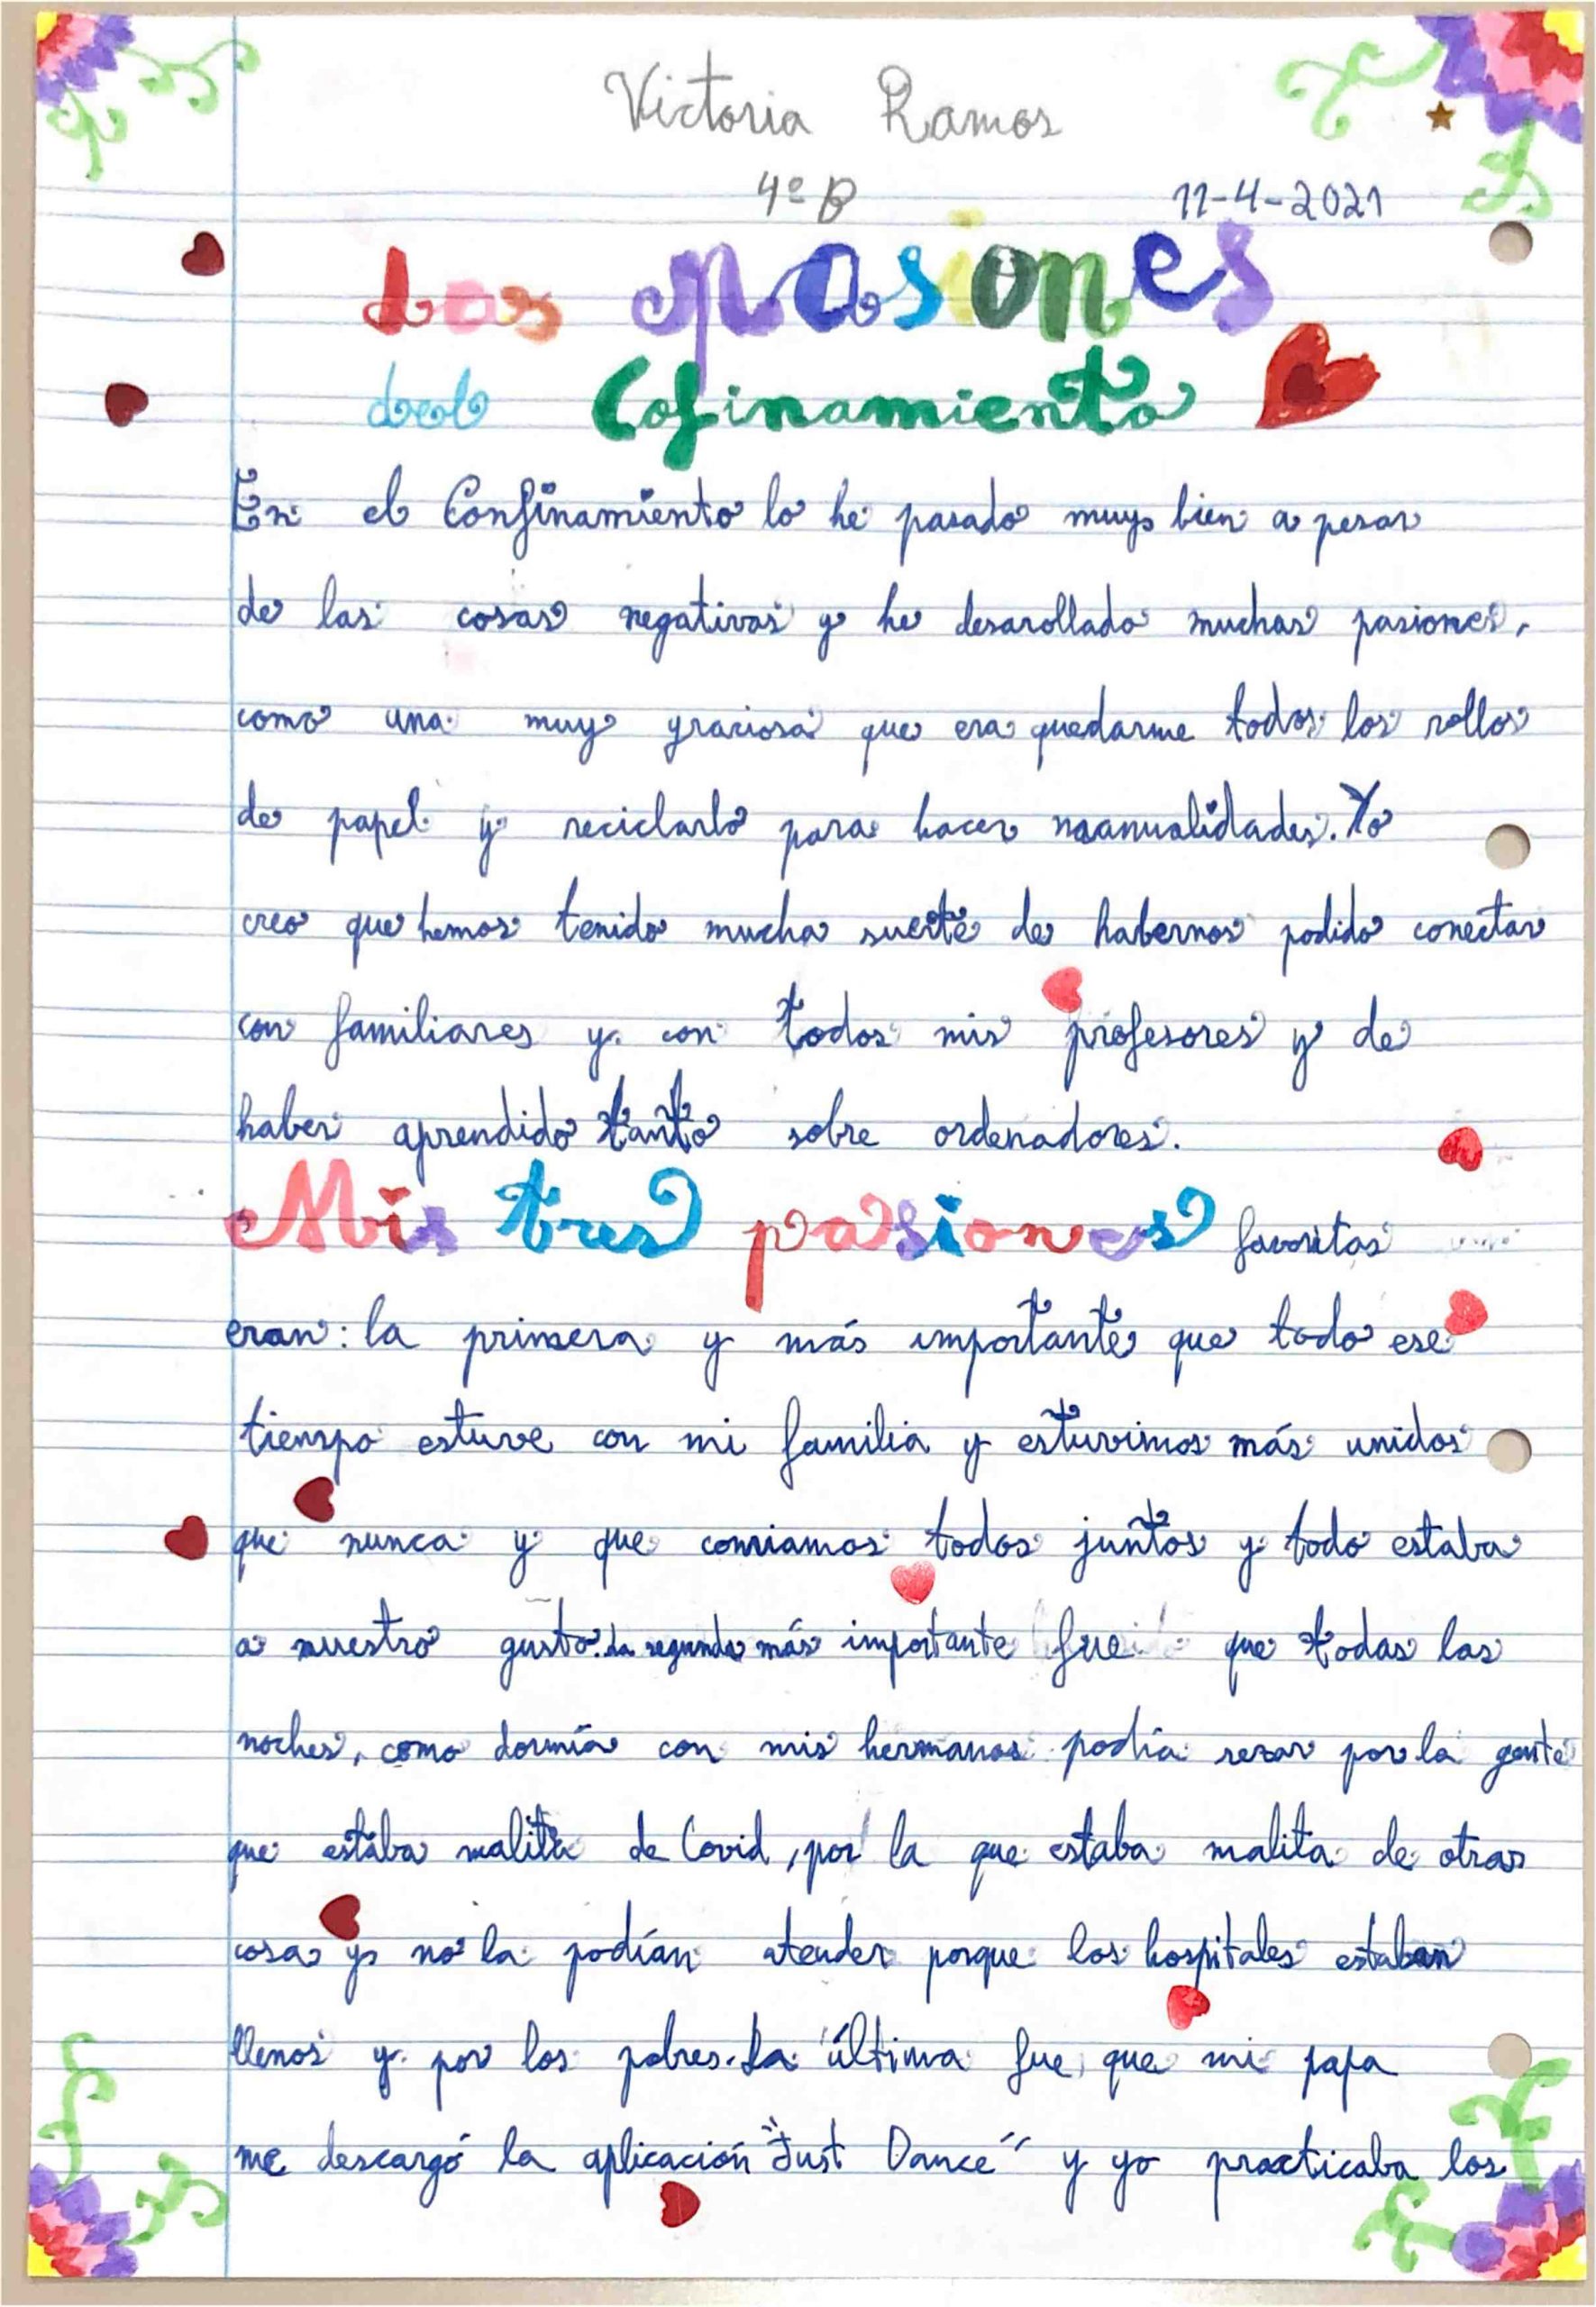 Victoria Ramos
4º B 11-4-2021
Las pasiones
del Cofinamiento
En el Confinamiento lo he pasado muy bien a pesar
de las cosas negativas y he desarollado muchas pasiones,
como una muy graciosa que era quedarme todos los rollos
de papel y reciclarlo para hacer manualidades. Yo
creo que hemos tenido mucha suerte de habernos podido conectar
con familiares y con todos mis profesores y de
haber aprendido tanto sobre ordenadores.
Mis tres pasiones favoritas
eran: la primera y más importante que todo ese
tiempo estuve con mi familia y estuvimos más unidos
que nunca y que comiamos todos juntos y todo estaba
a nuestro gusto. La segunda más importante fue que todas las
noches, como dormía con mis hermanos podía rezar por la gente
que estaba malita de Covid, por la que estaba malita de otras
cosas y no la podían atender porque los hospitales estaban
llenos y por los pobres. La última fue que mi papa
me descargó la aplicación "Just Dance" y yo practicaba los